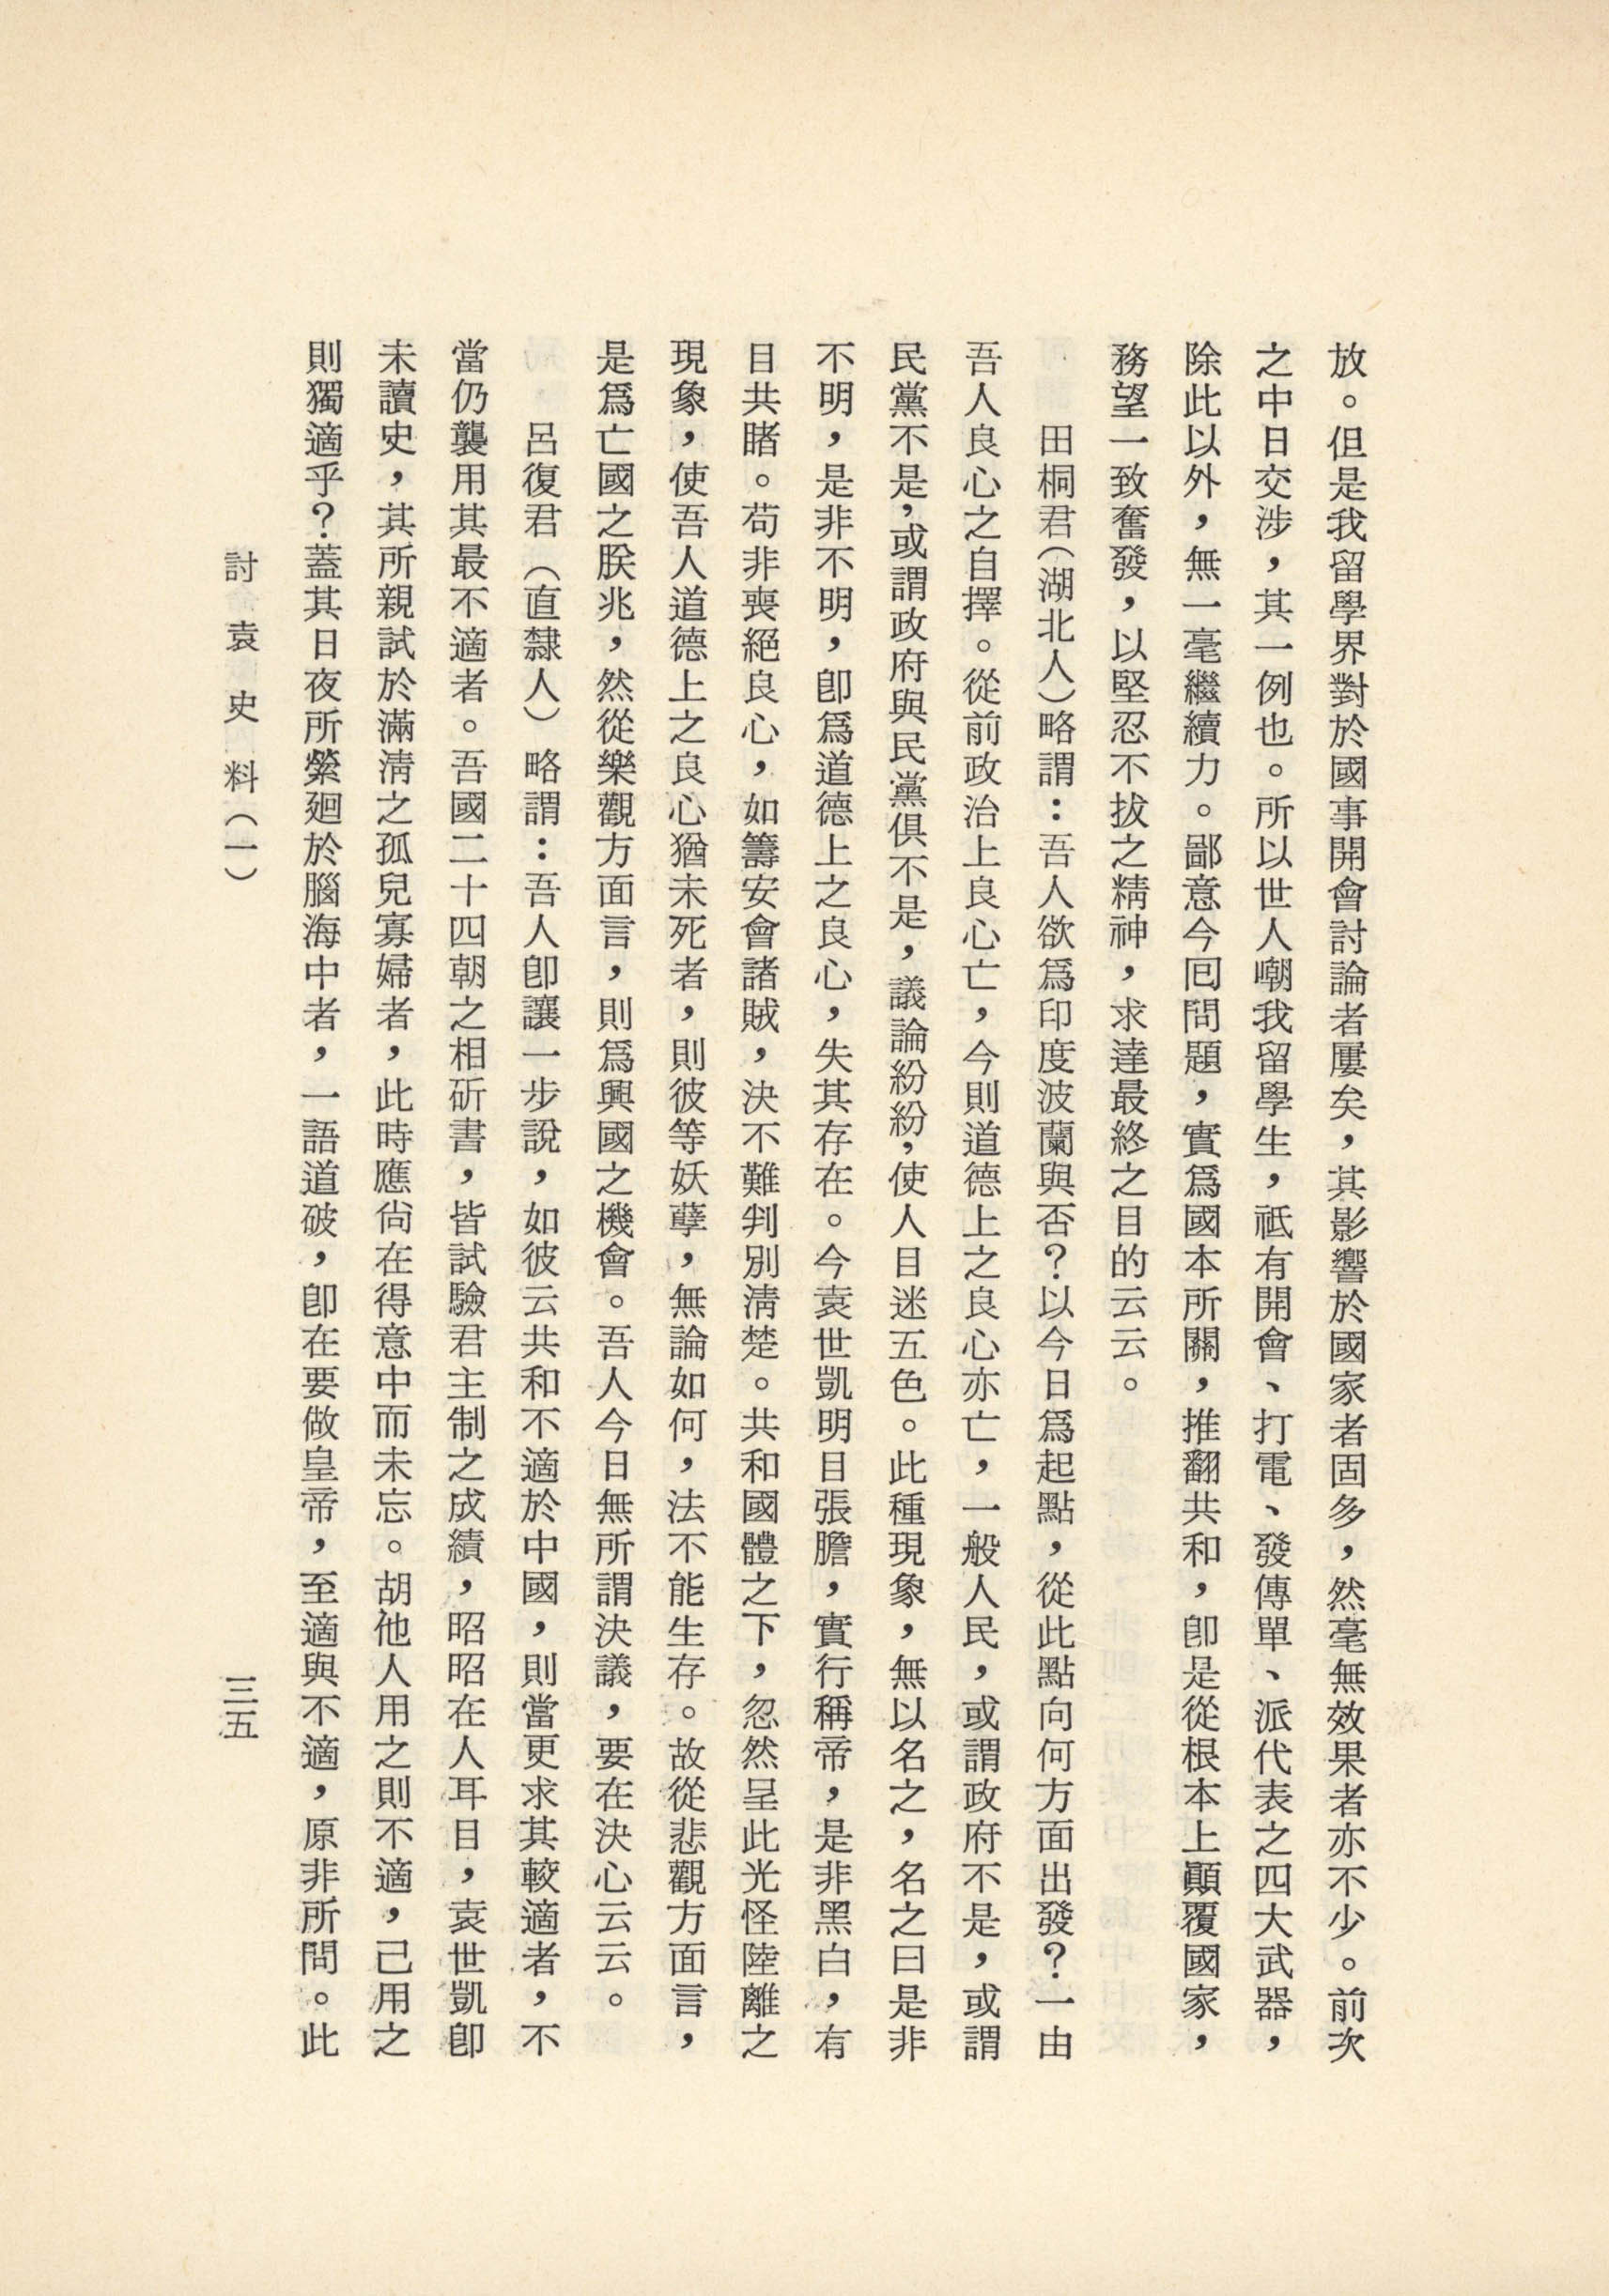 放。但是我留學界對於國事開會討論者屢矣，其影響於國家者固多，然毫無效果者亦不少。前次
之中日交涉，其一例也。所以世人嘲我留學生，祗有開會、打電、發傳單、派代表之四大武器，
除此以外，無一毫繼續力。鄙意今囘問題，實爲國本所關，推翻共和，卽是從根本上顚覆國家，
務望一致奮發，以堅忍不拔之精神，求達最終之目的云云。
田桐君（湖北人）略謂：吾人欲爲印度波蘭與否？以今日爲起點，從此點向何方面出發？一由
吾人良心之自擇。從前政治上良心亡，今則道德上之良心亦亡，一般人民，或謂政府不是，或謂
民黨不是，或謂政府與民黨俱不是，議論紛紛，使人目迷五色。此種現象，無以名之，名之曰是非
不明，是非不明，卽爲道德上之良心，失其存在。今袁世凱明目張膽，實行稱帝，是非黑白，有
目共睹。苟非喪絕良心，如籌安會諸賊，決不難判別淸楚。共和國體之下，忽然呈此光怪陸離之
現象，使吾人道德上之良心猶未死者，則彼等妖孽，無論如何，法不能生存。故從悲觀方面言，
是爲亡國之朕兆，然從樂觀方面言，則爲興國之機會。吾人今日無所謂決議，要在決心云云。
呂復君（直隸人）略謂：吾人卽讓一步說，如彼云共和不適於中國，則當更求其較適者，不
當仍襲用其最不適者。吾國二十四朝之相斫書，皆試驗君主制之成績，昭昭在人耳目，袁世凱卽
未讀史，其所親試於滿淸之孤兒寡婦者，此時應尙在得意中而未忘。胡他人用之則不適，己用之
則獨適乎？蓋其日夜所縈廻於腦海中者，一語道破，卽在要做皇帝，至適與不適，原非所問。此
討袁史料（一）
三五